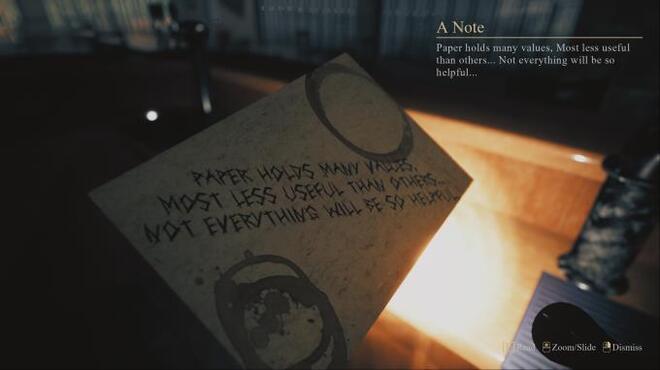 A Note
Paper holds many values, Most less useful
than others... Not everything will be so
helpful...
PAPER HOLDS MANY VALUES,
MOST LESS USEFUL THAN OTHERS...
NOT EVERYTHING WILL BE SO HELPFUL
Read Zoom/Slide Dismiss